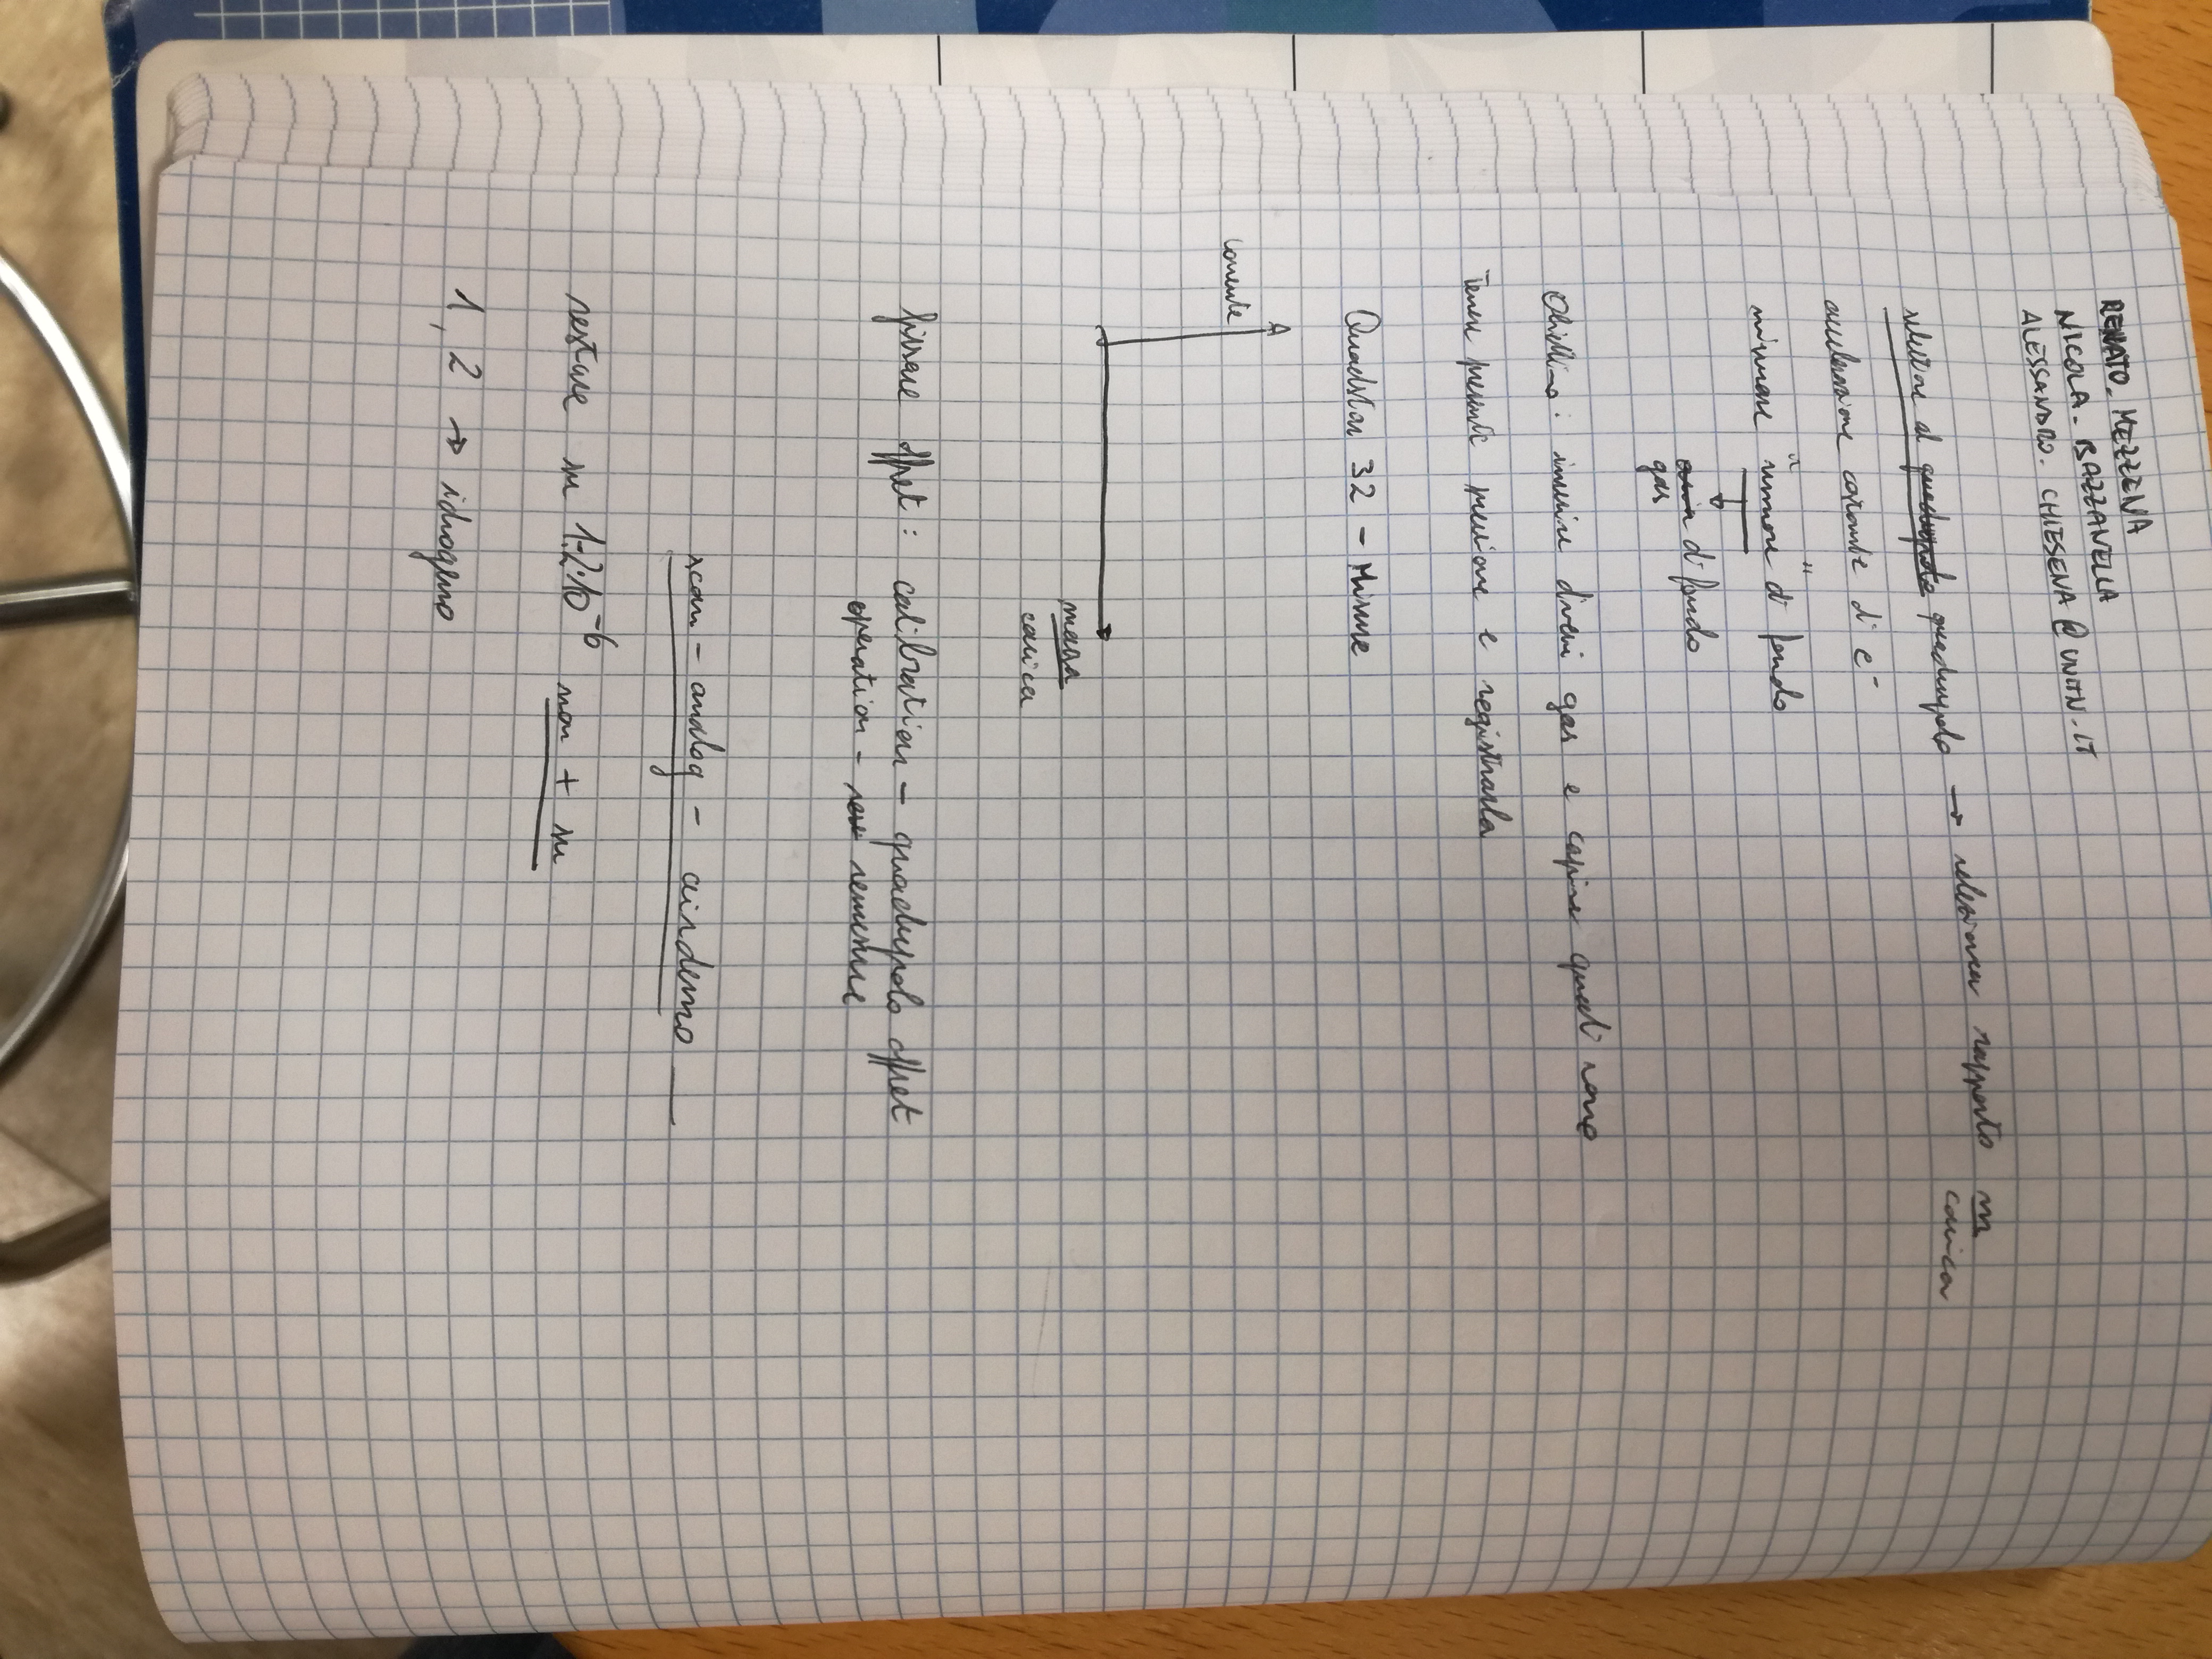 RENATO. MEZZENA
NICOLA. BAZZANELLA
ALESSANDRO. CHIESENA @ UNITN. IT
quadrupolo → rapporto m
carica
accelerazione costante di e-
misurare "rumore di fondo"
di fondo
gas
Obiettivo: inserire diversi gas e capire quali sono
Tenere presente pressione e registrarla
Quadstar 32 - Misure
corrente
massa
carica
fissare offset: calibration - quadrupolo offset
operation - remove
scan - analog - airdemo
restare su 1-2·10-6 non + su
1, 2 → idrogeno